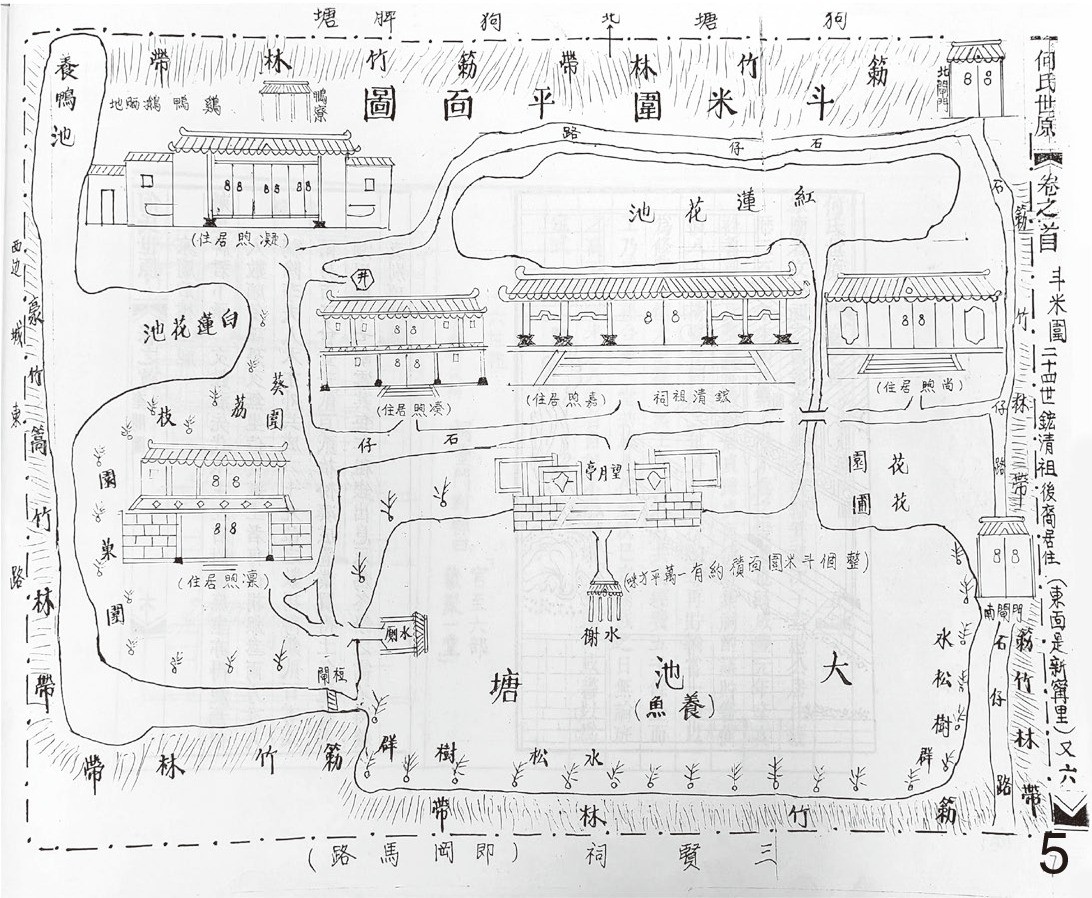 何氏世原
卷之首
斗米圍 二十四世鋐清祖後裔居住（東面是新寗里）又六
5
狗 塘 北 狗 脾 塘
簕 竹 林 帶 簕 竹 林 帶
斗 米 圍 平 面 圖
北閘門
鴨寮
鷄 鴨 鵝 晒地
養鴨池
石 仔 路
紅 蓮 花 池
(凝煦居住)
井
白蓮花池
(湊煦居住)
(嘉煦居住)
鋐清祖祠
(尚煦居住)
葵園
荔 枝 園
菓 園
石 仔
望月亭
花 園
花 圃
(凛煦居住)
水廁
水榭
(整個斗米圍面積約有一萬平方咪)
大 池 塘
(養魚)
南閘門
水 松 樹 群
水 松 樹 群
石 仔 路
簕 竹 林 帶
簕 竹 林 帶
石 仔 路
西边
東
路
竹 林 帶
簕 竹 林 帶
簕 竹 林 帶
三 賢 祠 (即岡馬路)